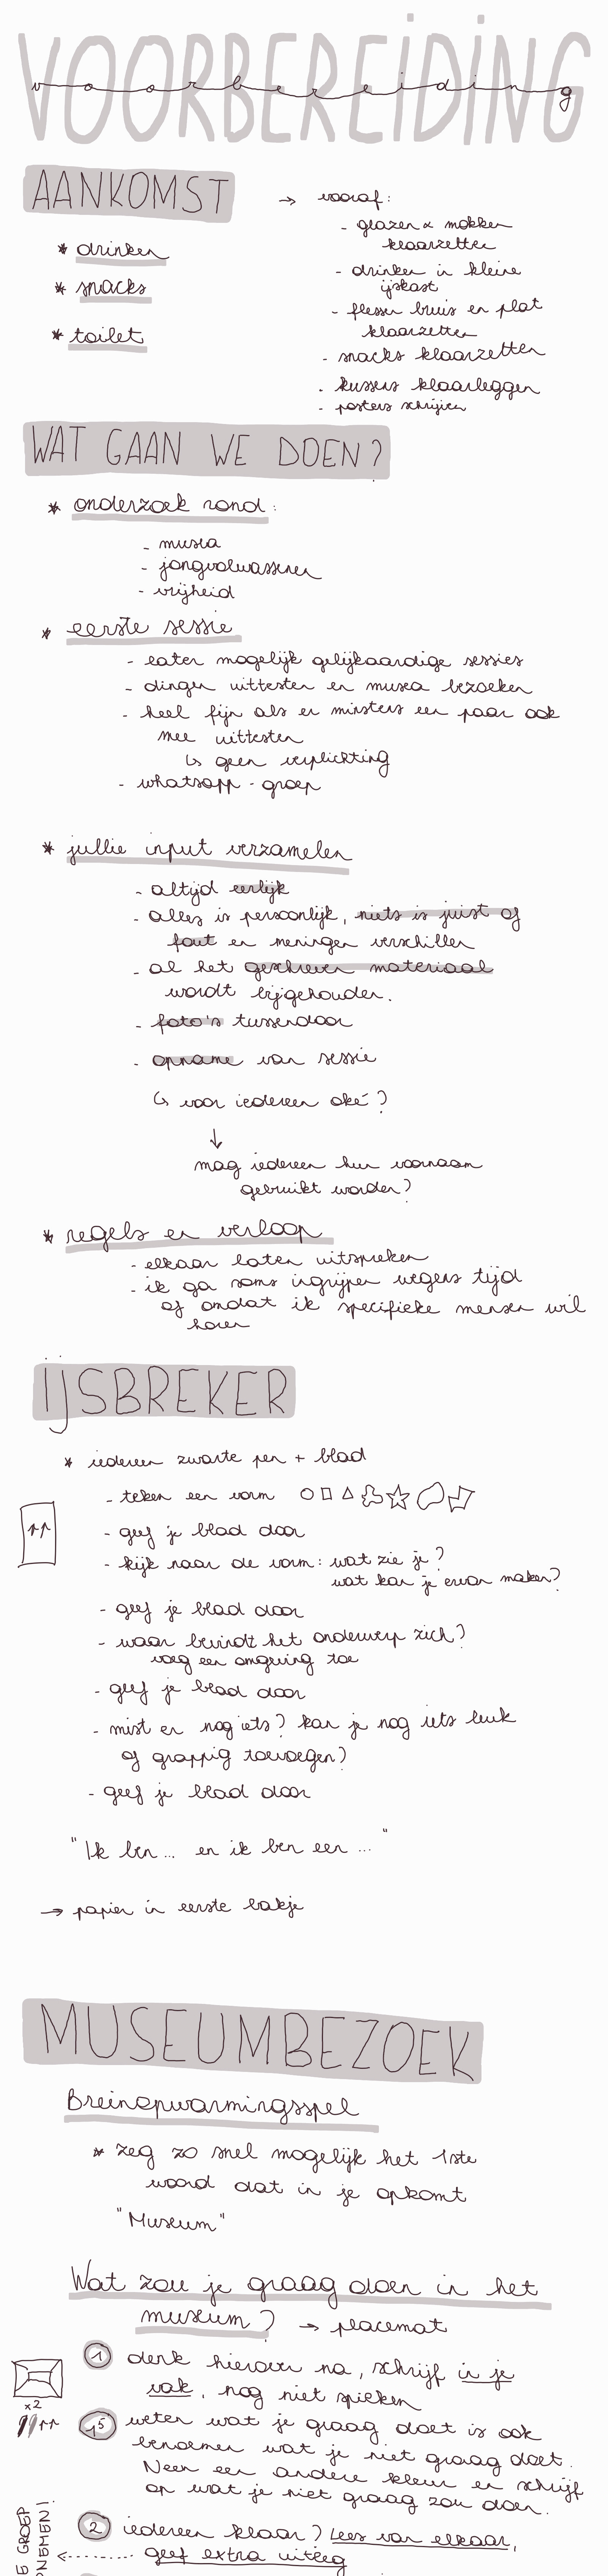 VOORBEREIDING
voorbereiding
AANKOMST
* drinken
* snacks
* toilet
→ vooraf:
- glazen & mokken
klaarzetten
- drinken in kleine
ijskast
- flessen bruis en plat
klaarzetten
- snacks klaarzetten
- kussens klaarleggen
- posters schrijven
WAT GAAN WE DOEN?
* onderzoek rond:
- musea
- jongvolwassenen
- vrijheid
* eerste sessie
- later mogelijk gelijkaardige sessies
- dingen uittesten en musea bezoeken
- heel fijn als er minstens een paar ook
mee uittesten
↳ geen verplichting
- whatsapp-groep
* jullie input verzamelen
- altijd eerlijk
- alles is persoonlijk, niets is juist of
fout en meningen verschillen
- al het geschreven materiaal
wordt bijgehouden.
- foto's tussendoor
- opname van sessie
↳ voor iedereen oké?
↓
mag iedereen hun voornaam
gebruikt worden?
* regels en verloop
- elkaar laten uitspreken
- ik ga soms ingrijpen wegens tijd
of omdat ik specifieke mensen wil
horen
IJSBREKER
* iedereen zwarte pen + blad
- teken een vorm
- geef je blad door
- kijk naar de vorm: wat zie je?
wat kan je ervan maken?
- geef je blad door
- waar bevindt het onderwerp zich?
voeg een omgeving toe
- geef je blad door
- mist er nog iets? kan je nog iets leuk
of grappig toevoegen?
- geef je blad door
"Ik ben ... en ik ben een ..."
→ papier in eerste bakje
MUSEUMBEZOEK
Breinopwarmingsspel
* zeg zo snel mogelijk het 1ste
woord dat in je opkomt
"Museum"
Wat zou je graag doen in het
museum? → placemat
1 denk hierover na, schrijf in je
vak, nog niet spieken
x2
1,5 weten wat je graag doet is ook
benoemen wat je niet graag doet.
Neem een andere kleur en schrijf
op wat je niet graag zou doen.
2 iedereen klaar? Lees van elkaar,
geef extra uitleg
E GROEP
NEMEN!